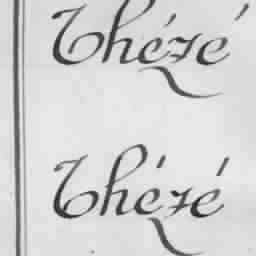 Thézé
Thézé